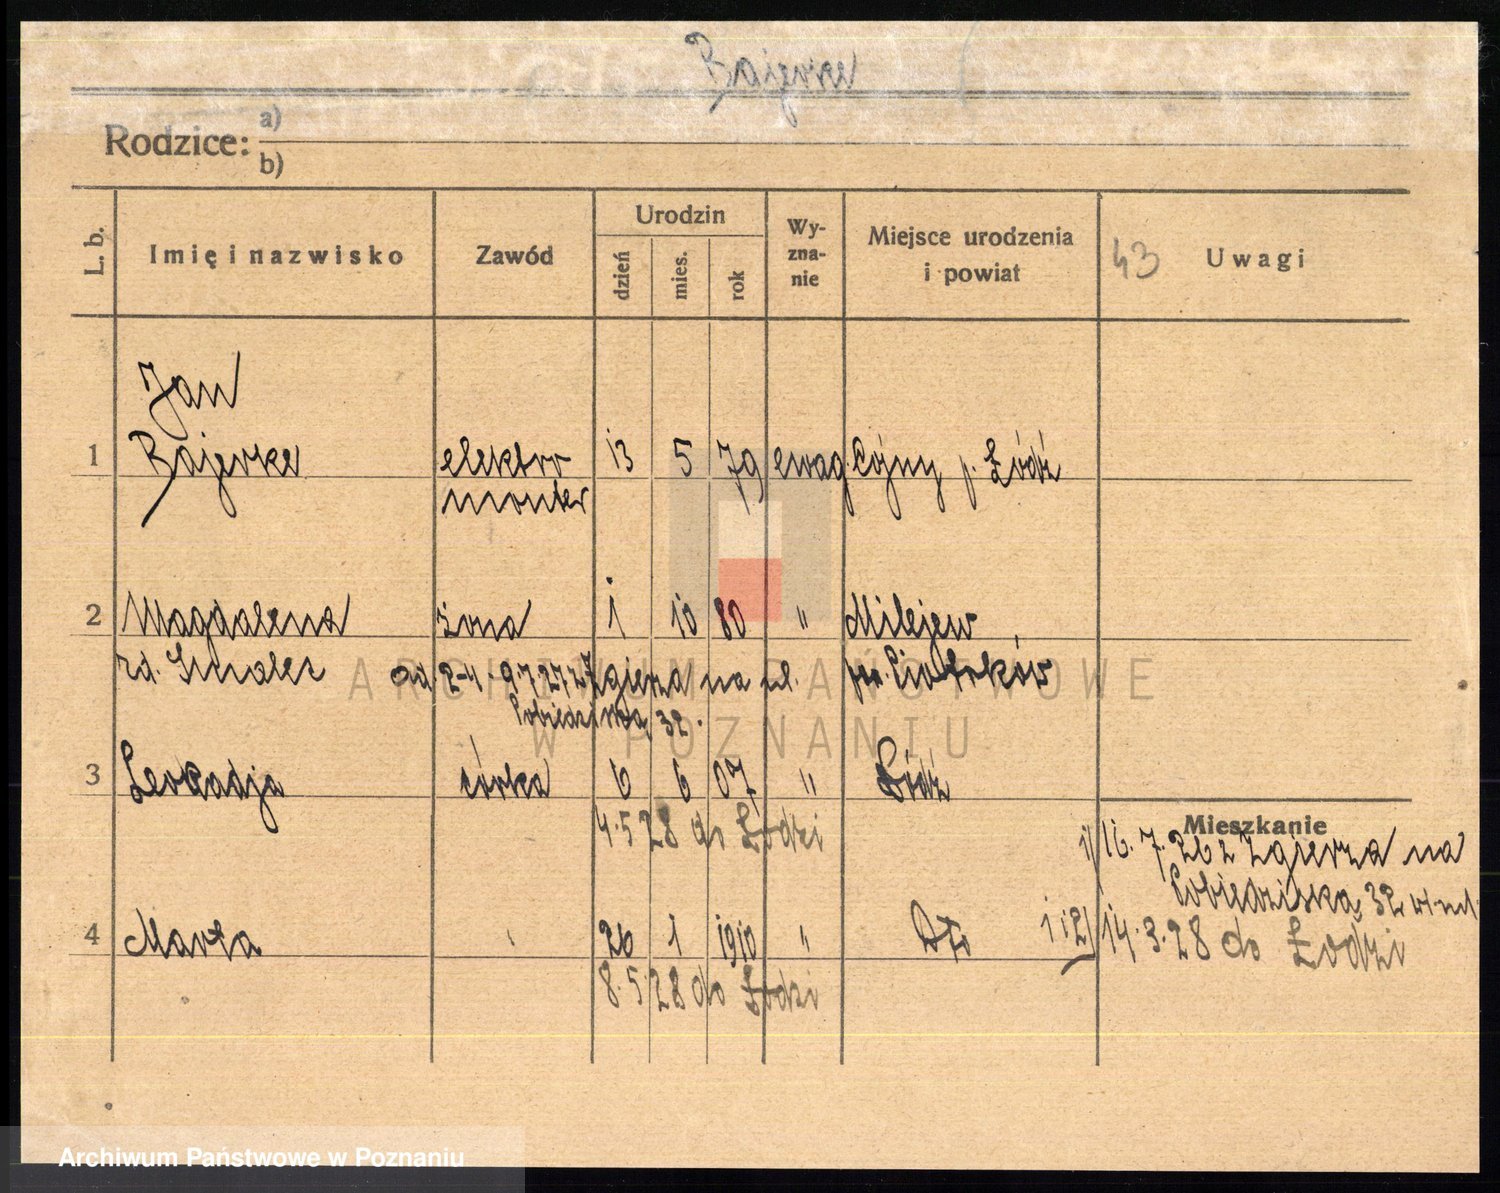 Bajerke
Rodzice: a)
b)
L. b. Imię i nazwisko Zawód Urodzin dzień mies. rok Wy-zna-nie Miejsce urodzenia i powiat 43 Uwagi
Jan
1 Bajerke elektro 13 5 79 ewag. p. Łódź
monter
2 Magdalena żona 1 10 80 " Milejew
rd. od 2-4 - 9.7.27 z Zgierza na ul. pow. Piotrków
Pobiedziską 32.
3 Leokadja córka 6 6 07 " Łódź
4.5.28 do Łodzi
Mieszkanie
1/ 16. 7. 26 z Zgierza na
Pobiedziską 32
4 Marta 26 1 1910 " 1 i 2/ 14.3.28 do Łodzi
8.5.28 do Łodzi
ARCHIWUM PAŃSTWOWE
W POZNANIU
Archiwum Państwowe w Poznaniu